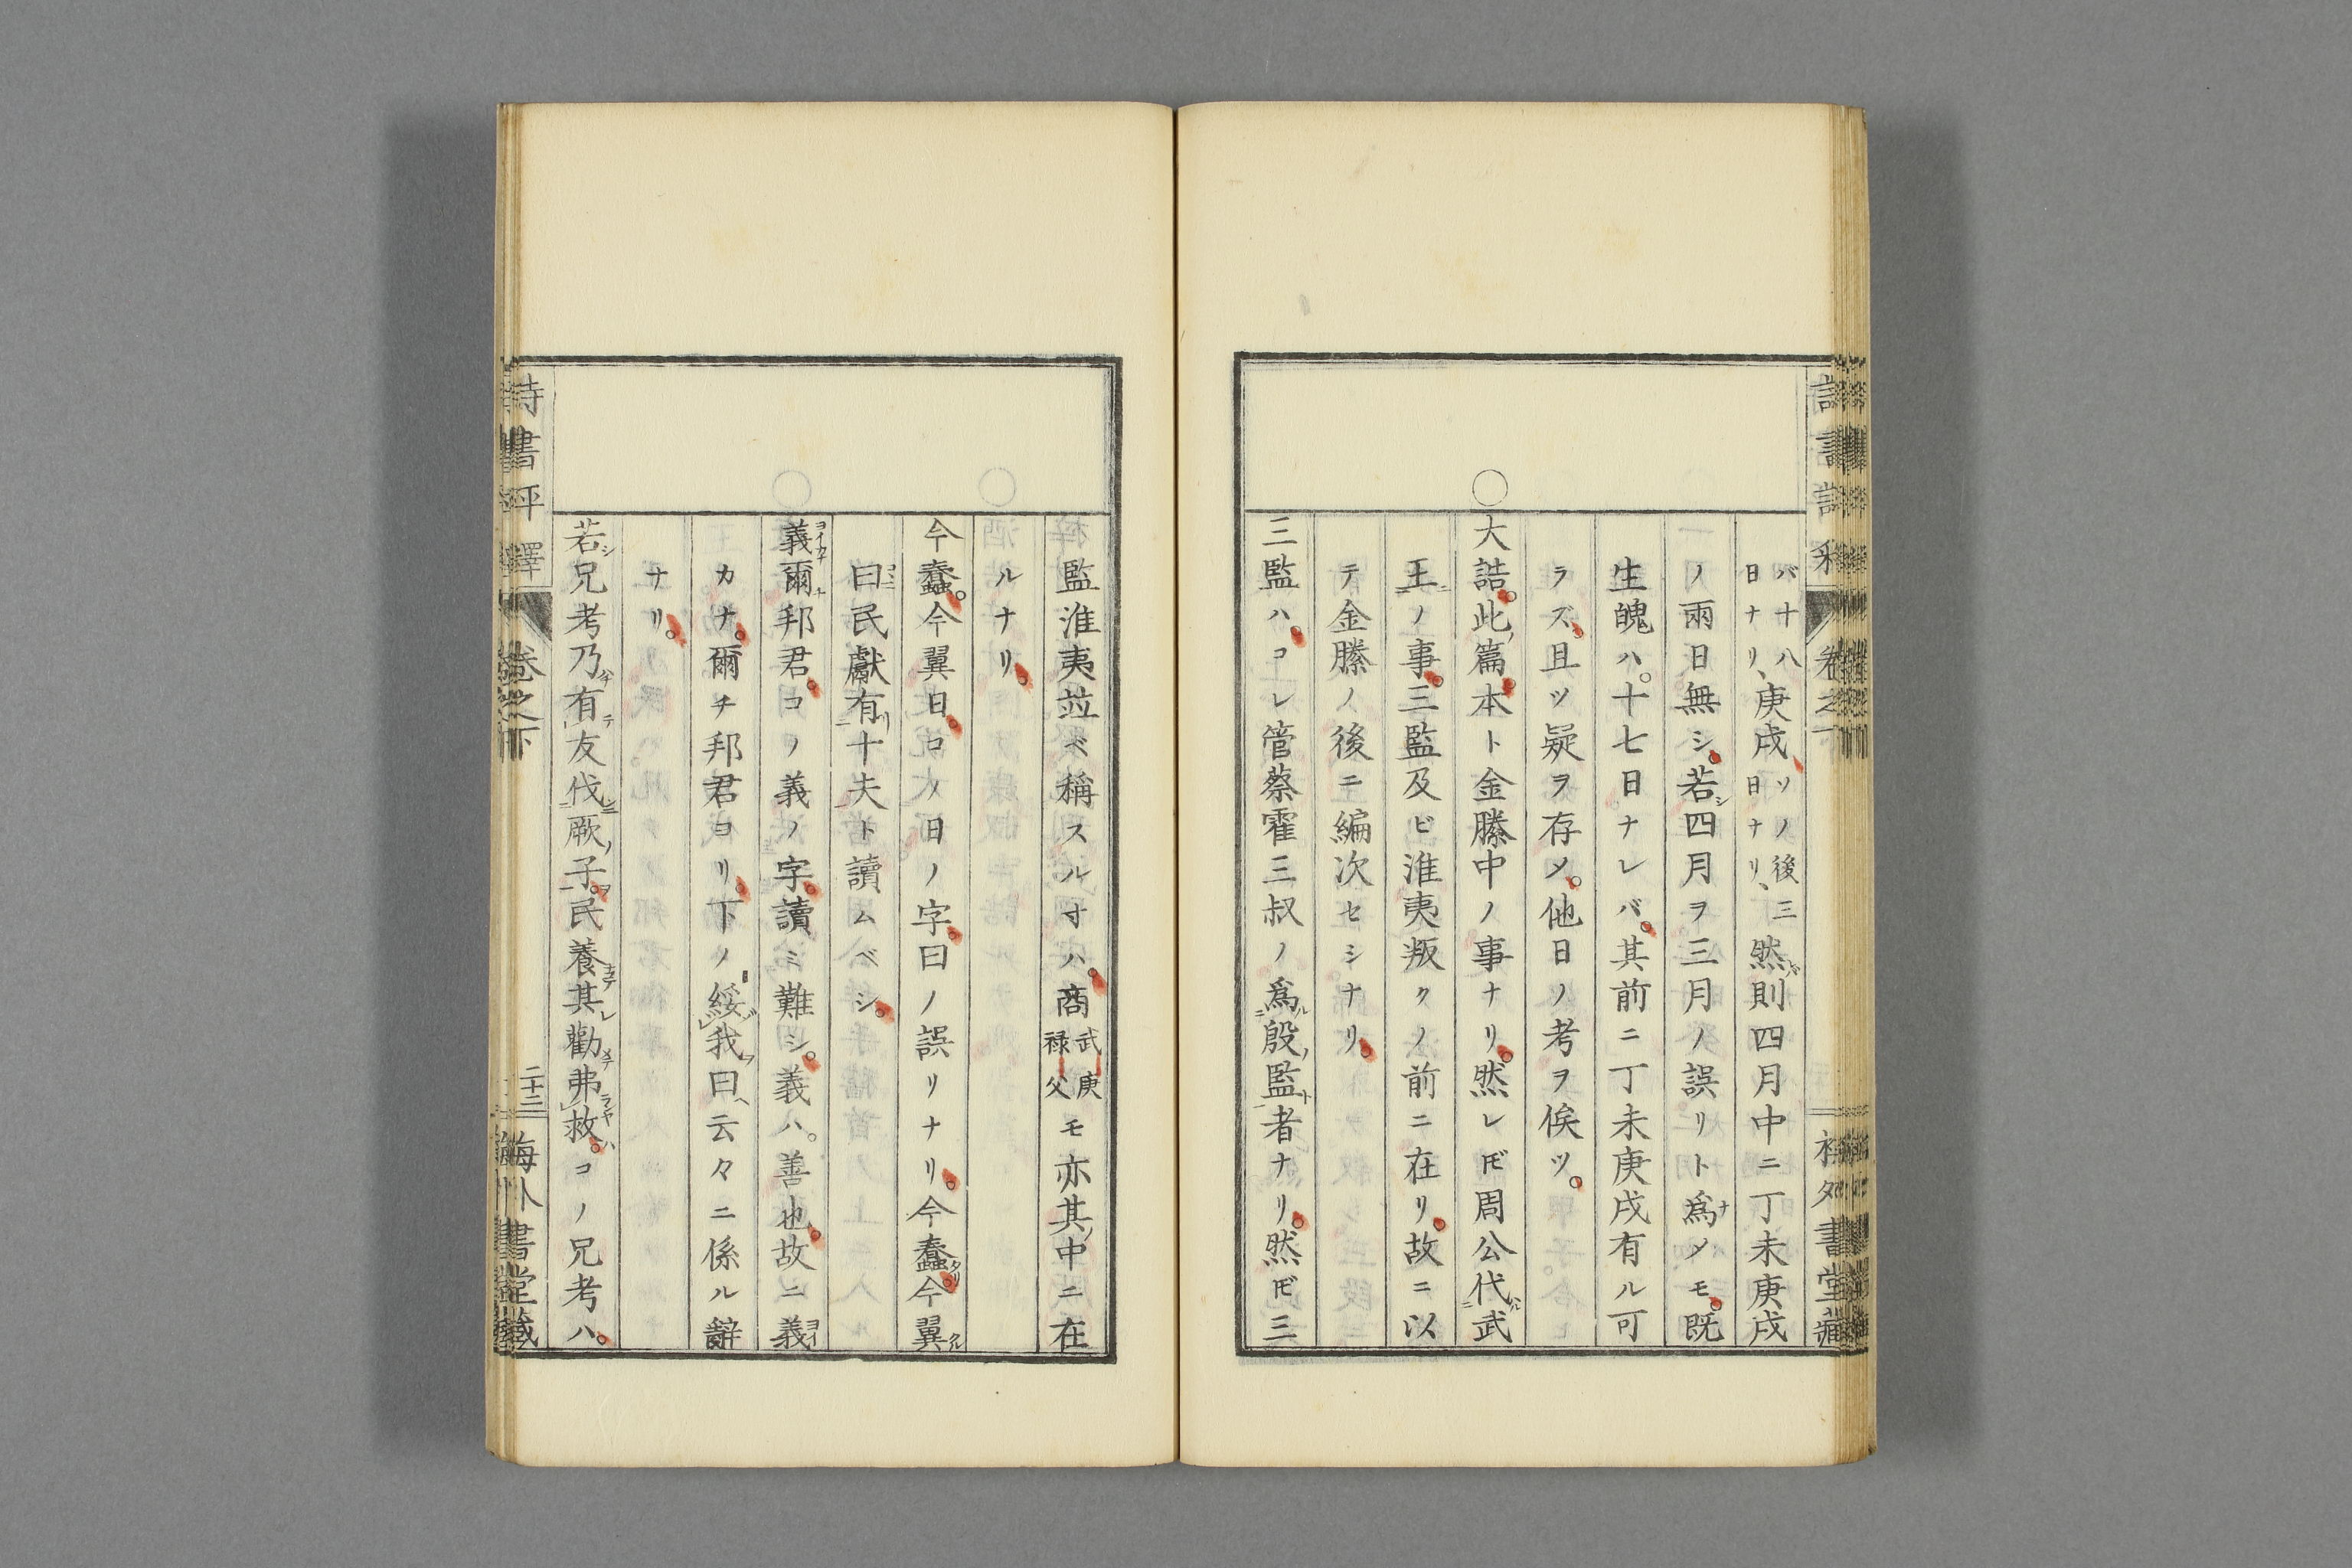 バ十八日ナリ、庚戌ソノ後三日ナリ、然則四月中ニ丁未庚戌
ノ兩日無シ。若四月ヲ三月ノ誤リト爲メモ。既
生魄ハ。十七日ナレバ。其前ニ丁未庚戌有ル可
ラズ。且ツ疑ヲ存メ。他日ノ考ヲ俟ツ。
○大誥。此篇。本ト金縢中ノ事ナリ。然レ𪜈周公代武
王ノ事。三監及ビ淮夷叛クノ前ニ在リ。故ニ以
テ金縢ノ後ニ編次セシナリ。
三監ハ。コレ管蔡霍三叔ノ爲殷監者ナリ。然𪜈三
監淮夷竝ベ稱スルヿハ。商武庚禄父モ亦其中ニ在
ルナリ。
今蠢。今翼日。コノ日ノ字。曰ノ誤リナリ。今蠢。今翼
曰民獻有十夫ト讀ムベシ。
義爾邦君。コノ義ノ字。讀ミ難シ。義ハ。善也。故ニ義
カナ。爾チ邦君ヨリ。下ノ綏我曰云々ニ係ル辭
ナリ。
若兄考乃有友伐厥子。民養其勸弗救。コノ兄考ハ。
詩書評釋 卷之下 二十三 書堂藏